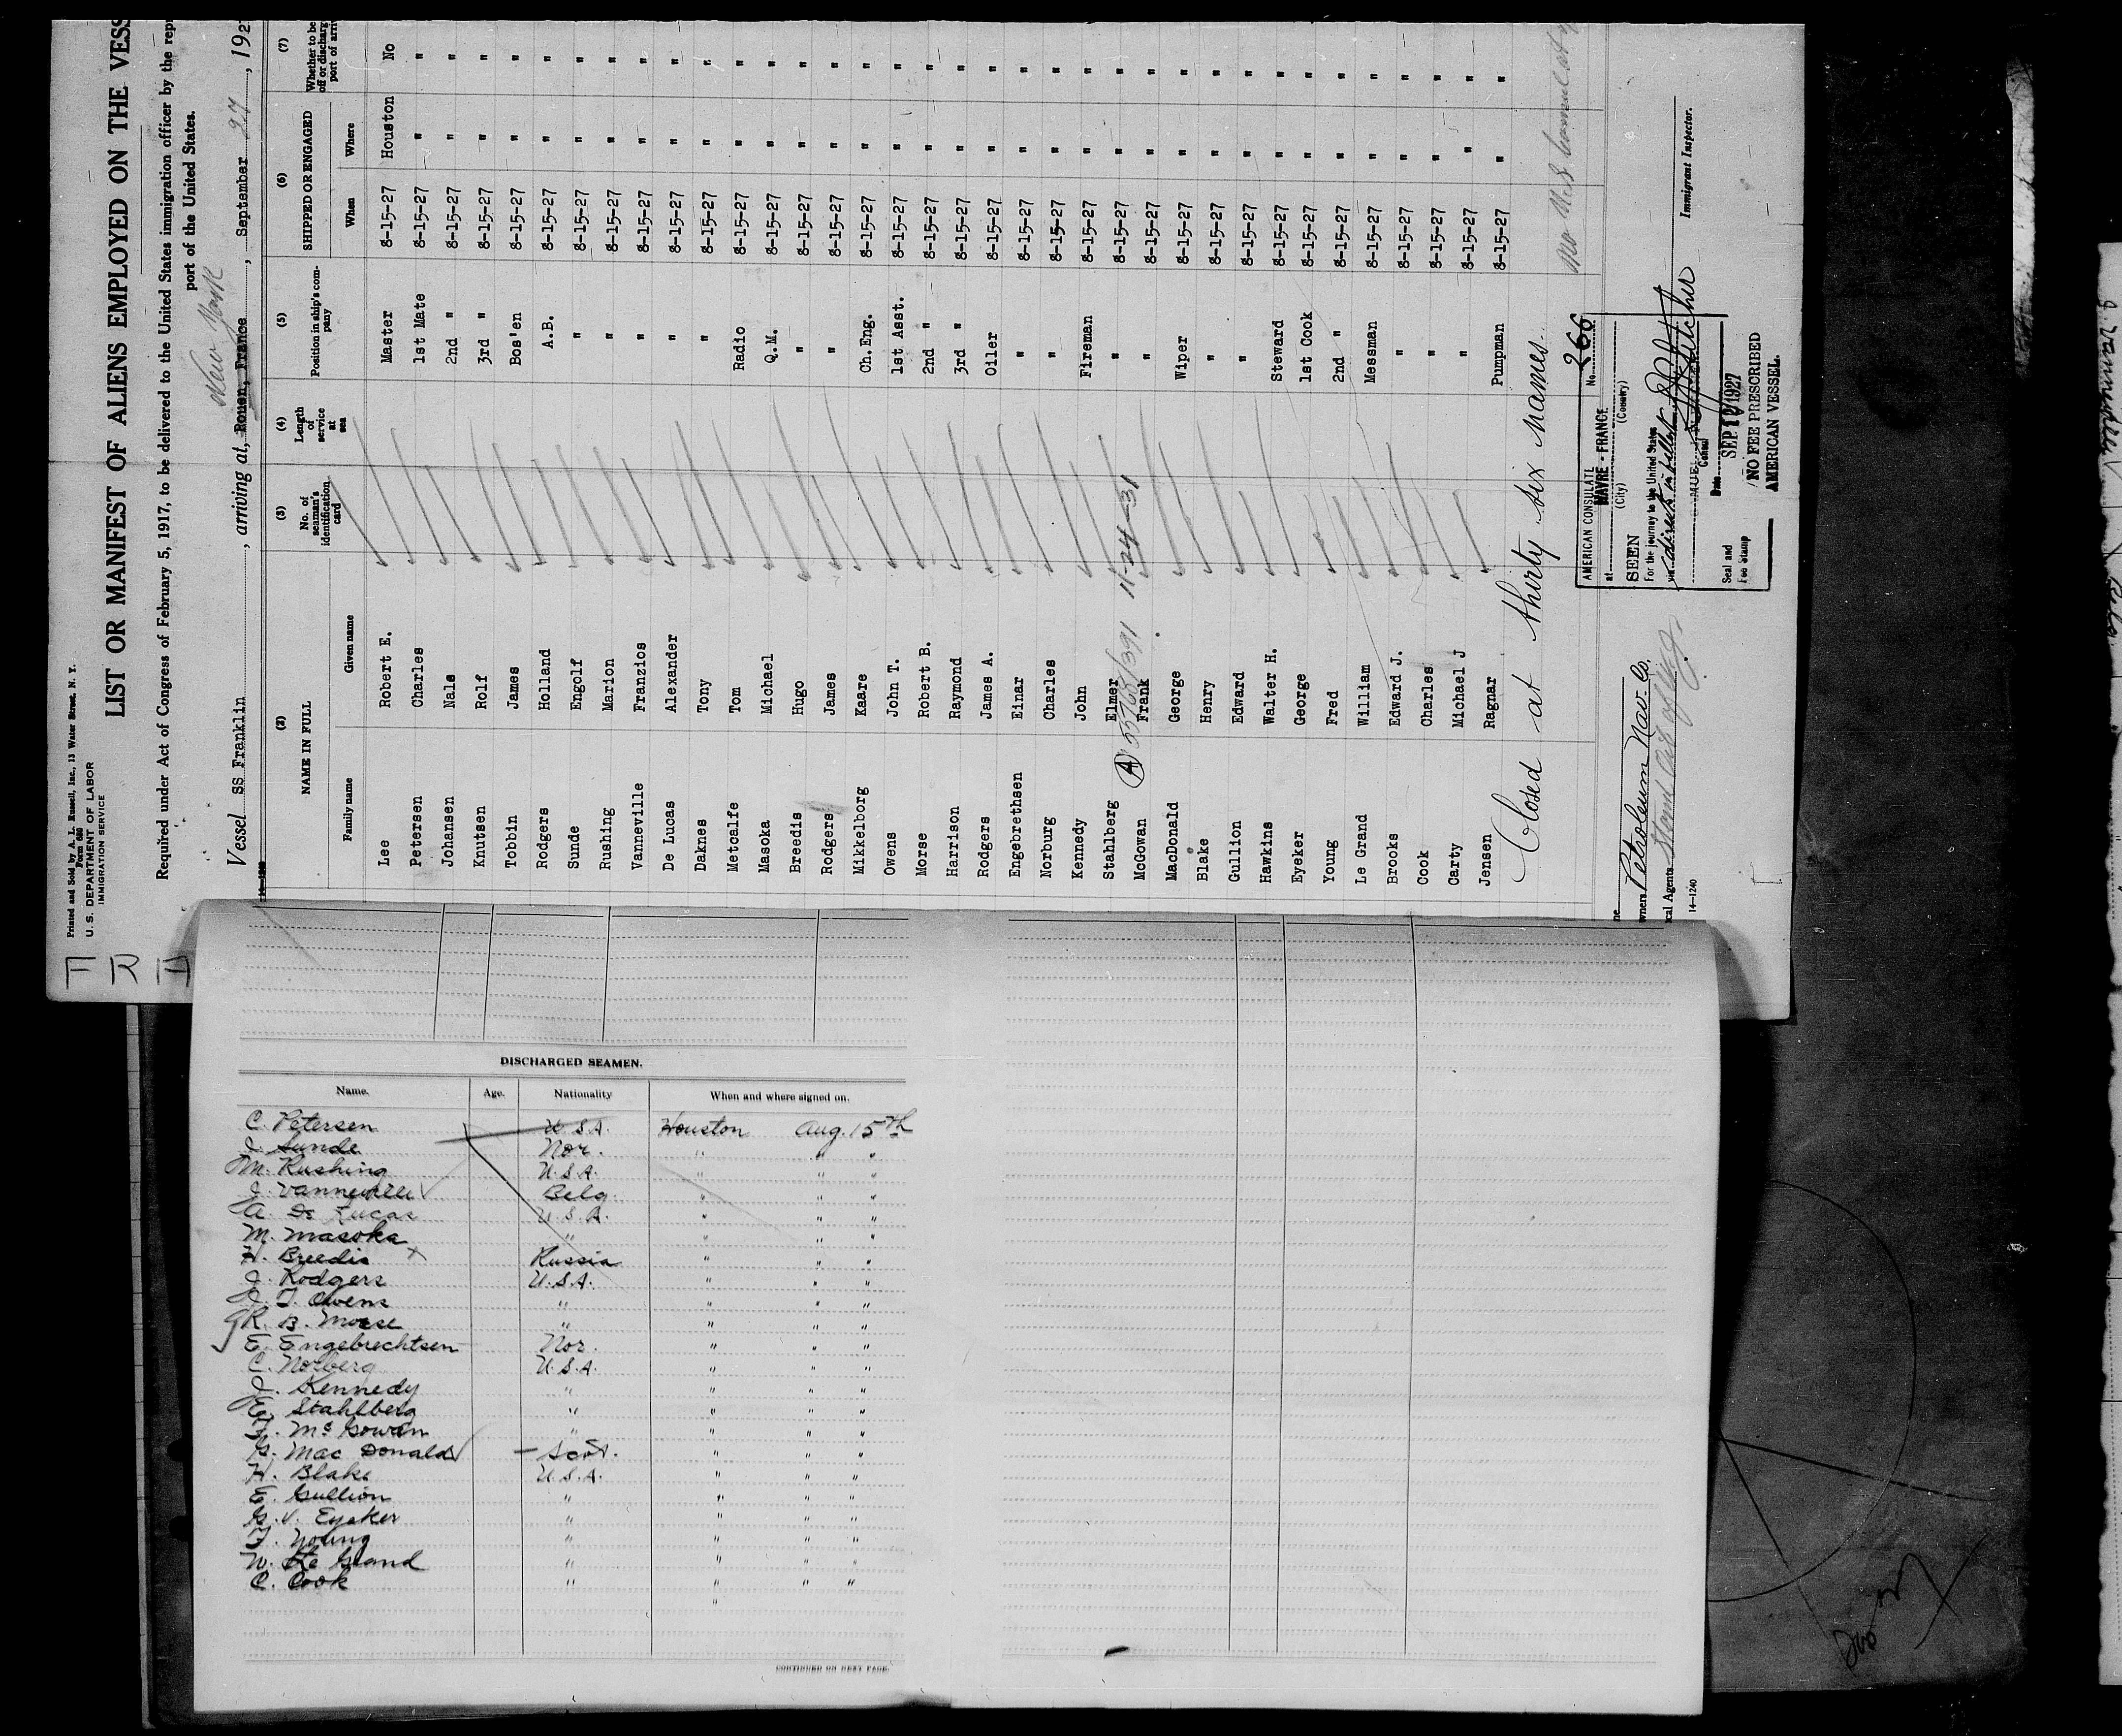 FRA
Printed and Sold by A. L. Russell, Inc., 13 Water Street, N. Y.
Form 680
U. S. DEPARTMENT OF LABOR
IMMIGRATION SERVICE
LIST OR MANIFEST OF ALIENS EMPLOYED ON THE VESS
Required under Act of Congress of February 5, 1917, to be delivered to the United States immigration officer by the rep
port of the United States.
New York
Vessel SS Franklin, arriving at, Rouen, France, September 27, 192
(2) (3) (4) (5) (6) (7)
NAME IN FULL No. of seaman's identification card Length of service at sea Position in ship's company SHIPPED OR ENGAGED Whether to be off or discharg port of arriv
Family name Given name When Where
Lee Robert E. Master 8-15-27 Houston No
Petersen Charles 1st Mate 8-15-27 " "
Johansen Nals 2nd " 8-15-27 " "
Knutsen Rolf 3rd " 8-15-27 " "
Tobbin James Bos'en 8-15-27 " "
Rodgers Holland A.B. 8-15-27 " "
Sunde Engolf " 8-15-27 " "
Rushing Marion " 8-15-27 " "
Vanneville Franzios " 8-15-27 " "
De Lucas Alexander " 8-15-27 " "
Daknes Tony " 8-15-27 " "
Metcalfe Tom Radio 8-15-27 " "
Masoka Michael Q.M. 8-15-27 " "
Breedis Hugo " 8-15-27 " "
Rodgers James " 8-15-27 " "
Mikkelborg Kaare Ch.Eng. 8-15-27 " "
Owens John T. 1st Asst. 8-15-27 " "
Morse Robert B. 2nd " 8-15-27 " "
Harrison Raymond 3rd " 8-15-27 " "
Rodgers James A. Oiler 8-15-27 " "
Engebrethsen Einar " 8-15-27 " "
Norburg Charles " 8-15-27 " "
Kennedy John Fireman 8-15-27 " "
Stahlberg Elmer " 8-15-27 " "
A 55765/391 11-24-31
McGowan Frank " 8-15-27 " "
MacDonald George Wiper 8-15-27 " "
Blake Henry " 8-15-27 " "
Gullion Edward " 8-15-27 " "
Hawkins Walter H. Steward 8-15-27 " "
Eyeker George 1st Cook 8-15-27 " "
Young Fred 2nd " 8-15-27 " "
Le Grand William Messman 8-15-27 " "
Brooks Edward J. " 8-15-27 " "
Cook Charles " 8-15-27 " "
Carty Michael J " 8-15-27 " "
Jensen Ragnar Pumpman 8-15-27 " "
Closed at thirty six names.
No U.S.
AMERICAN CONSULATE No. 266
at HAVRE - FRANCE
(City) (Country)
SEEN
For the journey to the United States
via direct in ballast
Consul
Date SEP 10 1927
Seal and Fee Stamp
NO FEE PRESCRIBED
AMERICAN VESSEL.
Immigrant Inspector.
wners Petroleum Nav. Co.
cal Agents Stand Oil of N.J.
14—1240
DISCHARGED SEAMEN.
Name. Age. Nationality When and where signed on.
C. Petersen U.S.A. Houston Aug. 15th
J. Sunde Nor. " " "
M. Rushing U.S.A. " " "
J. Vanneville Belg " " "
A. De Lucas U.S.A. " " "
M. Masoka " " " "
H. Breedis Russia " " "
J. Rodgers U.S.A. " " "
J. T. Owens " " " "
R. B. Morse " " " "
E. Engebrechtsen Nor. " " "
C. Norberg U.S.A. " " "
J. Kennedy " " " "
E. Stahlberg " " " "
F. McGowan " " " "
G. Mac Donald Scot. " " "
H. Blake U.S.A. " " "
E. Gullion " " " "
G. V. Eyeker " " " "
F. Young " " " "
W. Le Grand " " " "
C. Cook " " " "
"
CONTINUED ON NEXT PAGE.